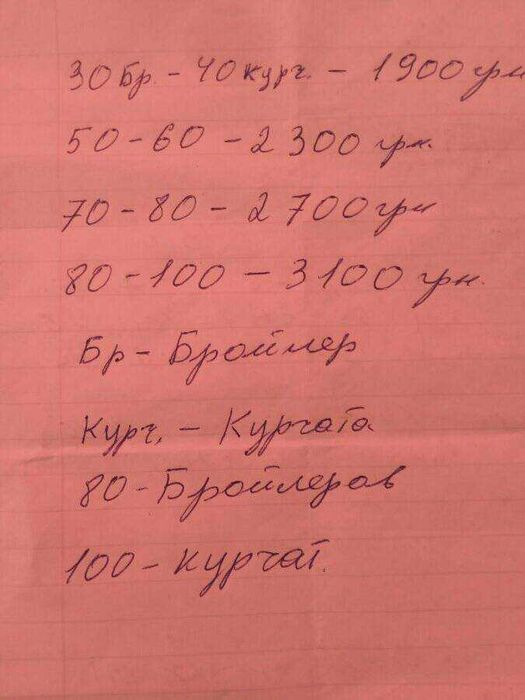 30 Бр. - 40 курч. - 1900 грн
50 - 60 - 2 300 грн.
70 - 80 - 2 700 грн
80 - 100 - 3 100 грн.
Бр - Бройлер
Курч. - Курчата
80 - Бройлеров
100 - Курчат.